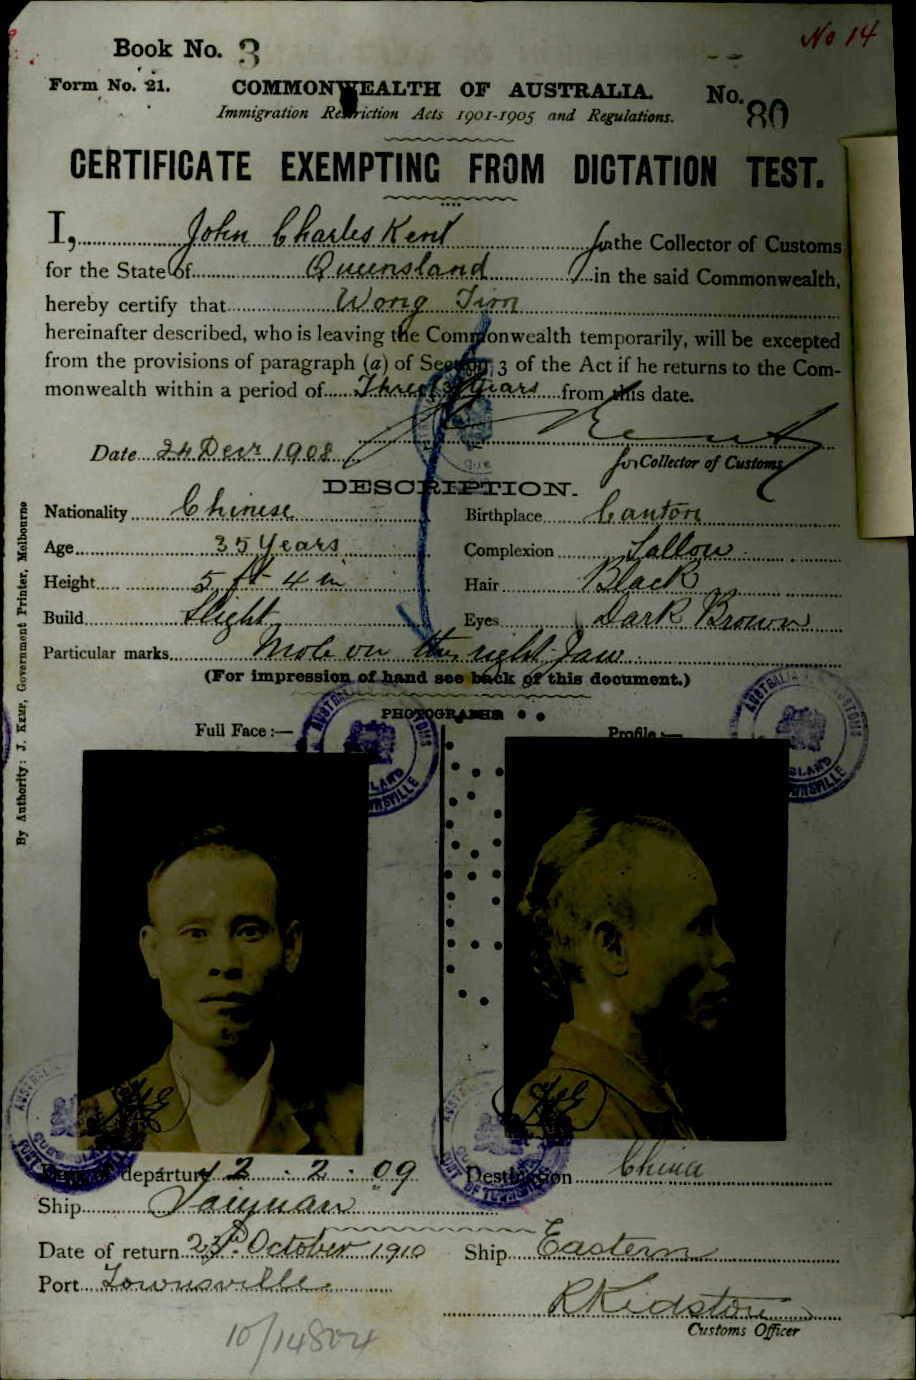 No 14
Book No. 3
Form No. 21.
COMMONWEALTH OF AUSTRALIA.
No. 80
Immigration Restriction Acts 1901-1905 and Regulations.
CERTIFICATE EXEMPTING FROM DICTATION TEST.
I, John Charles Kent for the Collector of Customs
for the State of Queensland in the said Commonwealth,
hereby certify that Wong Tim
hereinafter described, who is leaving the Commonwealth temporarily, will be excepted
from the provisions of paragraph (a) of Section 3 of the Act if he returns to the Com-
monwealth within a period of Three years from this date.
Kent
Date 24 Decr 1908
for Collector of Customs
DESCRIPTION.
Nationality Chinese
Birthplace Canton
Age 35 Years
Complexion Sallow
Height 5 ft 4 in
Hair Black
Build Slight
Eyes Dark Brown
Particular marks Mole on the right Jaw
(For impression of hand see back of this document.)
PHOTOGRAPHS
Full Face:—
Profile:—
By Authority: J. KEMP, Government Printer, Melbourne
Date of departure 2 . 2 . 09
Destination China
Ship Taiyuan
Date of return 23rd October 1910
Ship Eastern
Port Townsville
RKidston
Customs Officer
10/14804